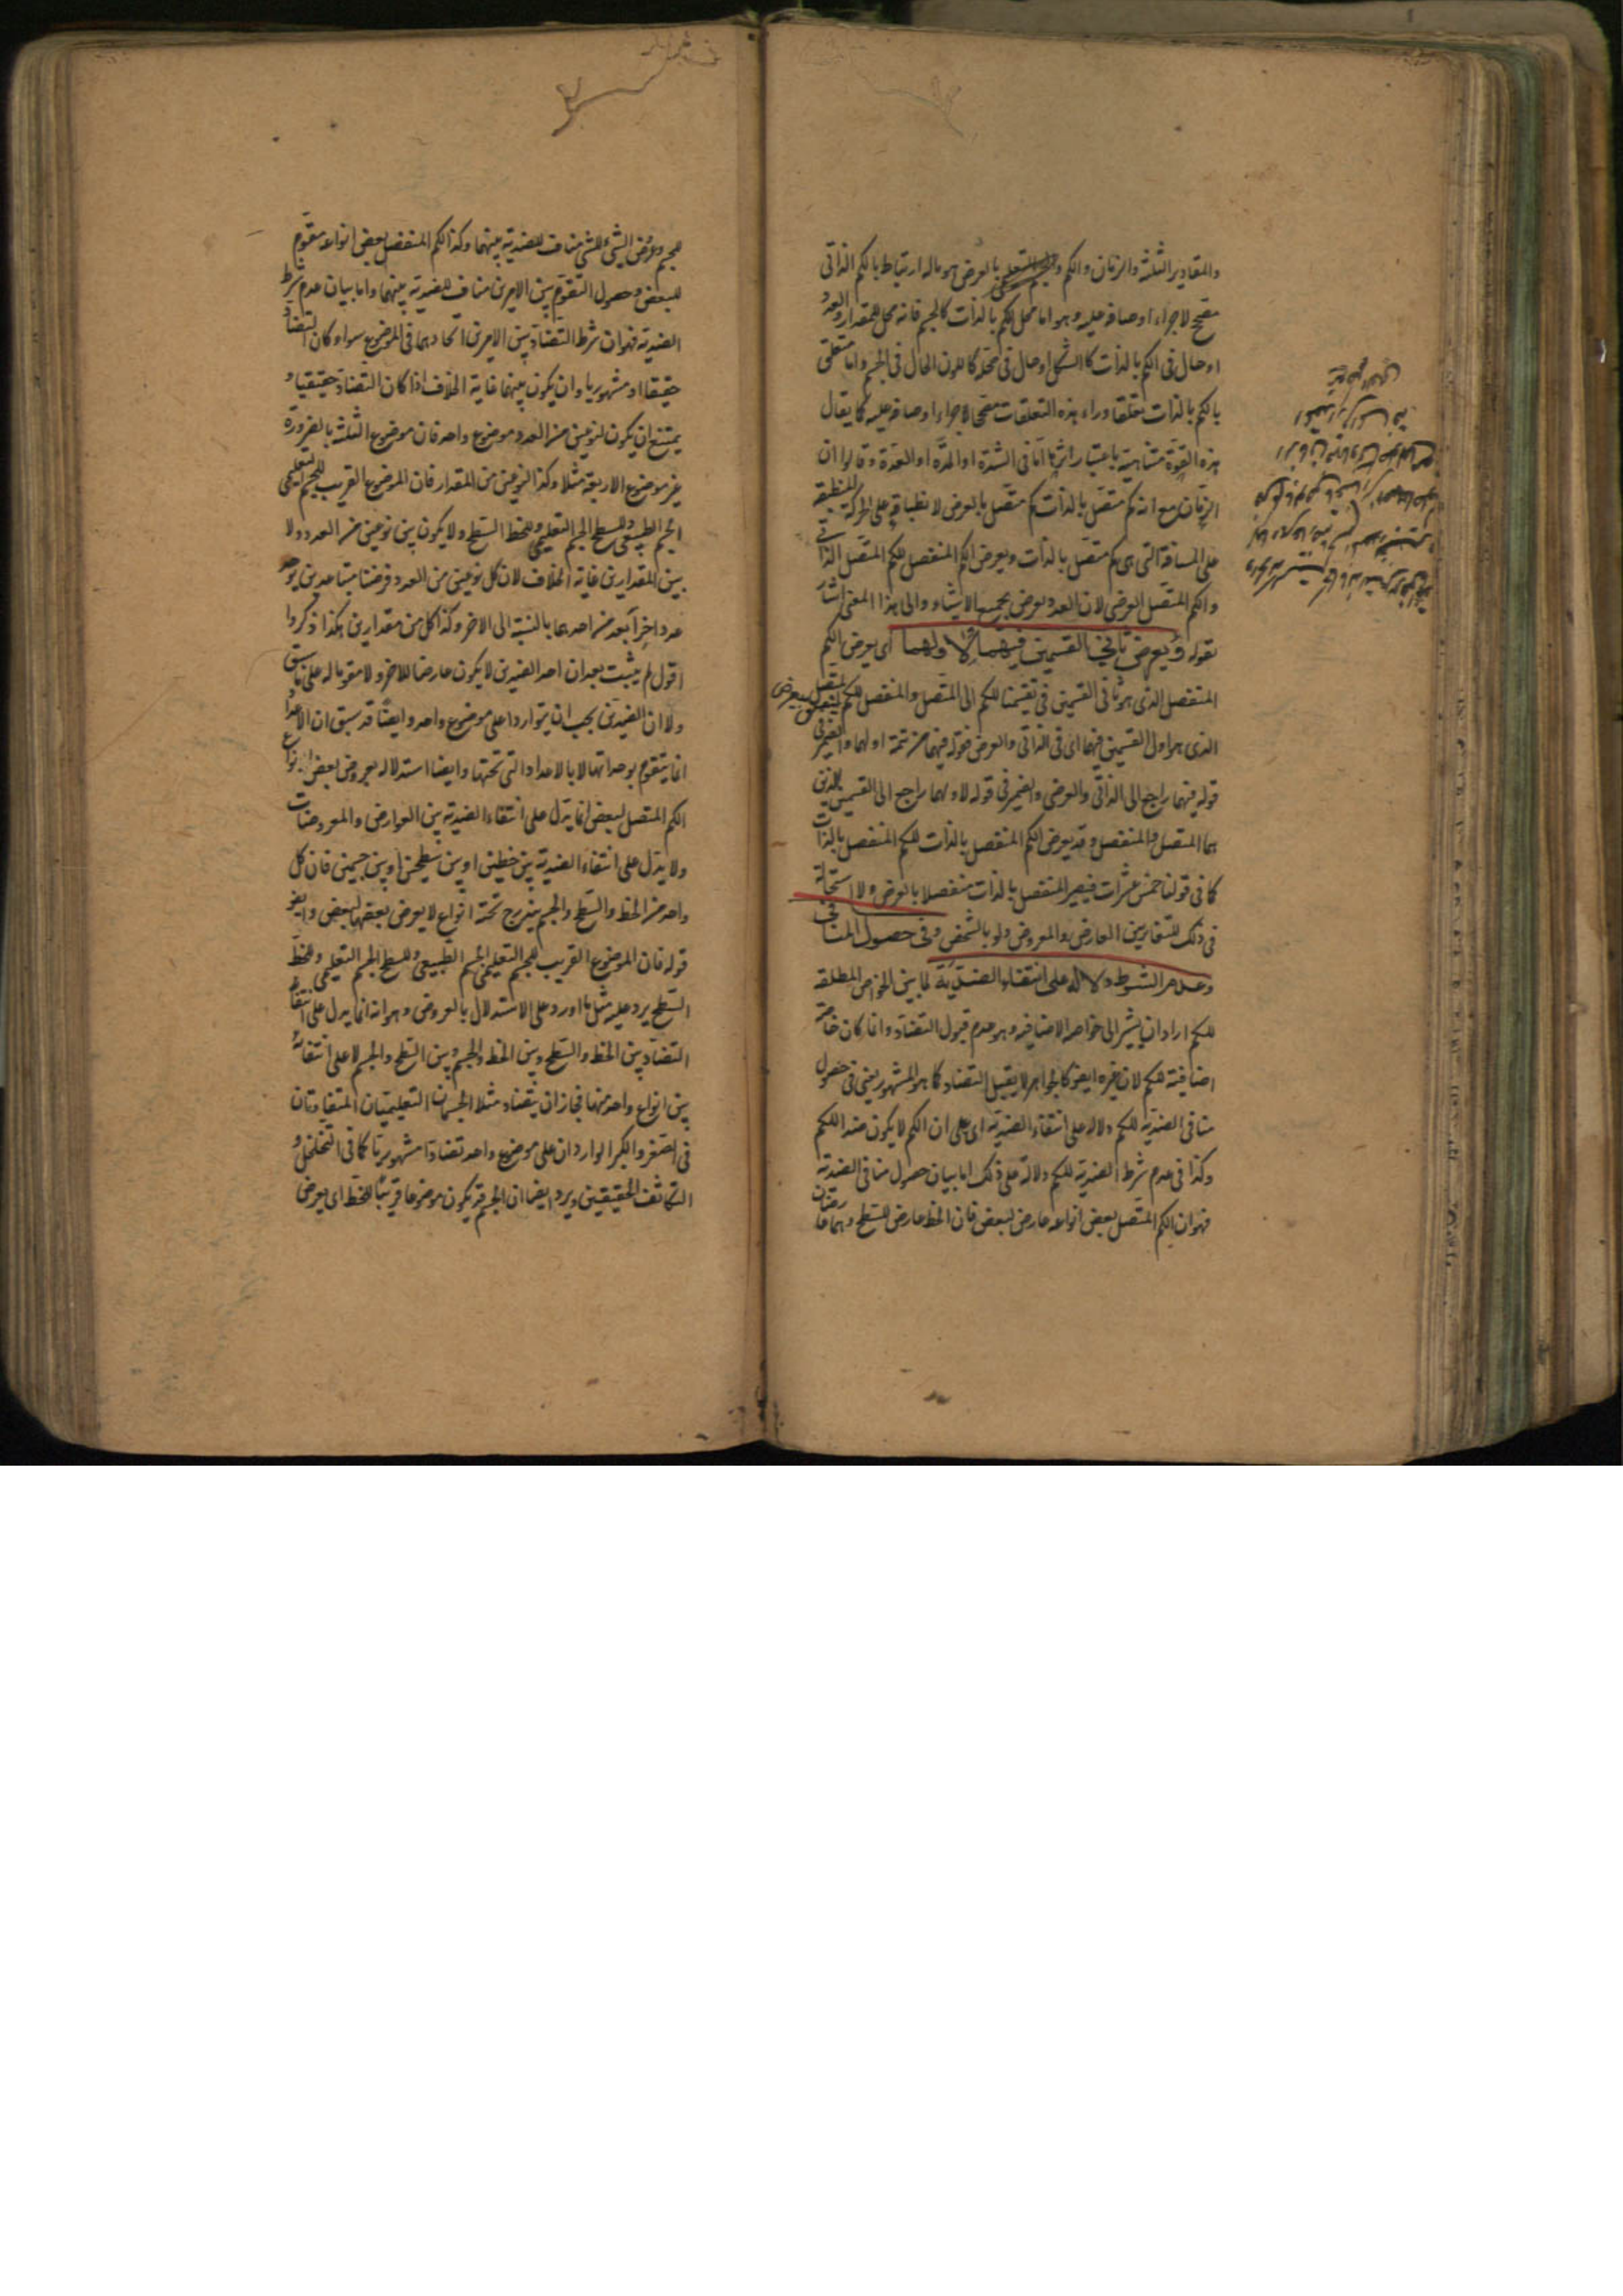 والمقادير الثلثة والزمان والكم بالعرض هو ماله ارتباط بالكم الذاتى
مصحح لاجراء اوصافه عليه وهو اما محل للكم بالذات كالجسم فانه محل للمقدار والعدد
او حال فى الكم بالذات كالشكل او حال فى محله كاللون الحال فى الجسم واما متعلق
بالكم بالذات تعلقا وراء هذه التعلقات مصححا لاجراء اوصافه عليه كما يقال
هذه القوة متناهية باعتبار اثرها اما فى الشدة او المدة او العدة وقالوا ان
الزمان مع انه كم متصل بالذات كم متصل بالعرض لانطباقه على الحركة المنطبقة
على المسافة التى هى كم متصل بالذات ويعرض الكم المنفصل للكم المتصل الذاتى
والكم المتصل العرضى لان العدد يعرض بجميع الاشياء والى هذا المعنى اشار
بقوله ويعرض ثانى القسمين فيهما لاولهما اى يعرض الكم
المنفصل الذى هو ثانى القسمين فى تقسيمنا للكم الى المتصل والمنفصل للكم المتصل
الذى هو اول القسمين فيهما اى فى الذاتى والعرضى فقوله فيهما من تتمة اولهما والضمير فى
قوله فيهما راجع الى الذاتى والعرضى والضمير فى قوله لاولهما راجع الى القسمين الذين
هما المتصل والمنفصل وقد يعرض الكم المنفصل بالذات للكم المنفصل بالذات
كما فى قولنا خمس عشرات فيصير المنفصل بالذات منفصلا بالعرض ولا استحالة
فى ذلك للتغاير بين العارض والمعروض ولو بالشخص وفى حصول المنافى
وعدم الشرط دلالة على انتفاء الضدية لما بين الخواص المطلقة
للكم اراد ان يشير الى خواصه الاضافية وهو عدم قبول التضاد وانما كان خاصة
اضافية للكم لان غيره ايضا كالجواهر لا يقبل التضاد كما هو المشهور يعنى فى حصول
منافى الضدية للكم دلالة على انتفاء الضدية اى على ان الكم لا يكون ضدا للكم
وكذا فى عدم شرط الضدية للكم دلالة على ذلك اما بيان حصول منافى الضدية
فهو ان الكم المتصل بعض انواعه عارض لبعض فان الخط عارض للسطح وهما عارضان
للجسم وعروض الشئ للشئ مناف للضدية بينهما وكذا الكم المنفصل بعض انواعه مقوم
للبعض وحصول التقوم بين الامرين مناف للضدية بينهما واما بيان عدم شرط
الضدية فهو ان شرط التضاد بين الامرين اتحادهما فى الموضوع سواء كان التضاد
حقيقيا او مشهوريا وان يكون بينهما غاية الخلاف اذا كان التضاد حقيقيا و
يمتنع ان يكون لنوعين من العدد موضوع واحد فان موضوع الثلثة بالضرورة
غير موضوع الاربعة مثلا وكذا لنوعين من المقدار فان الموضوع القريب للجسم التعليمى
الجسم الطبيعى وللسطح الجسم التعليمى وللخط السطح ولا يكون بين نوعين من العدد ولا
بين المقدارين غاية الخلاف لان كل نوعين من العدد فرضنا متباعدين يوجد
عدد اخر ابعد من احدهما بالنسبة الى الاخر وكذا كل من مقدارين هكذا ذكروا
اقول لم يثبت بعد ان احد الضدين لا يكون عارضا للاخر ولا مقوما له على ما سبق
ولا ان الضدين يجب ان يتواردا على موضوع واحد وايضا قد سبق ان الاعداد
انما يتقوم بوحداتها لا بالاعداد التى تحتها وايضا استدلاله بعروض بعض انواع
الكم المتصل لبعض انما يدل على انتفاء الضدية بين العوارض والمعروضات
ولا يدل على انتفاء الضدية بين خطين او بين سطحين او بين جسمين فان كل
واحد من الخط والسطح والجسم يندرج تحته انواع لا يعرض بعضها لبعض وايضا
قوله فان الموضوع القريب للجسم التعليمى الجسم الطبيعى وللسطح الجسم التعليمى وللخط
السطح يرد عليه مثل ما اورد على الاستدلال بالعروض وهو انه انما يدل على انتفاء
التضاد بين الخط والسطح وبين الخط والجسم وبين السطح والجسم لا على انتفائه
بين انواع واحد منها فجاز ان يتضاد مثلا الجسمان التعليميان المتفاوتان
فى الصغر والكبر الواردان على موضوع واحد تضادا مشهوريا كما فى التخلخل و
التكاثف الحقيقيين ويرد ايضا ان الجسم قد يكون موضوعا قريبا للخط اى يعرض